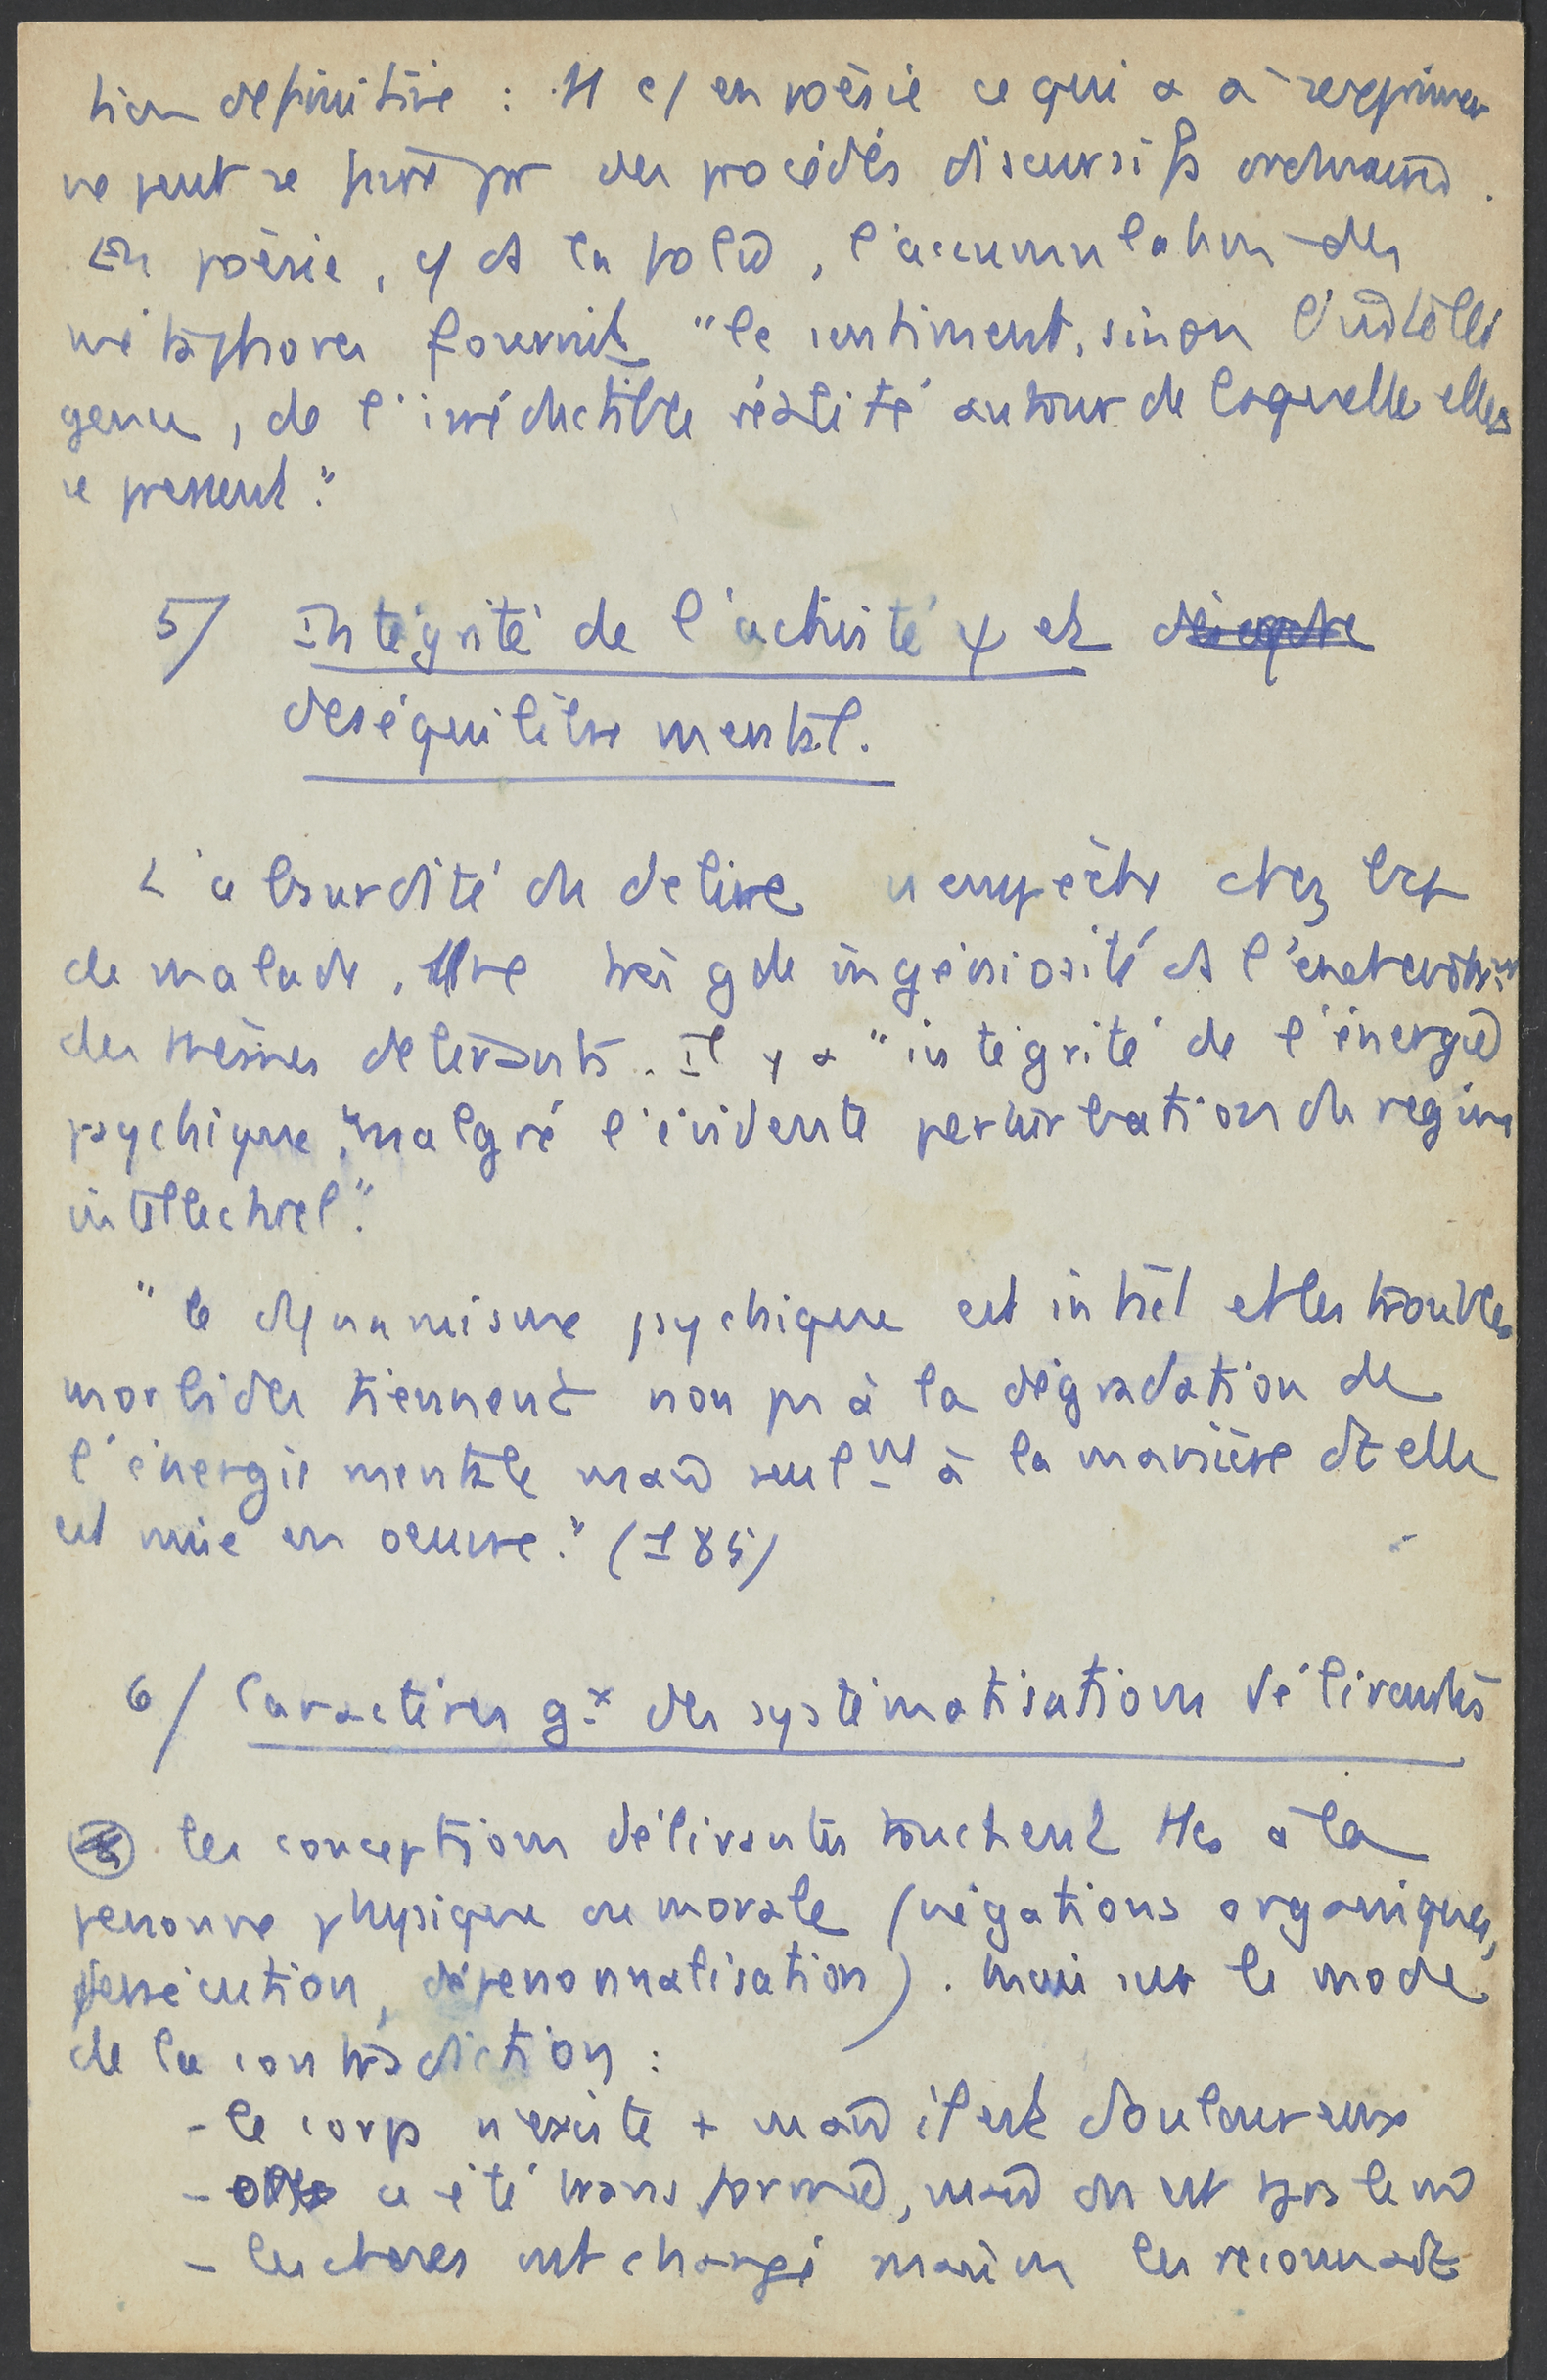 tion definitive : et c/ en poésie ce qui a à s'exprimer
ne peut se faire par des procédés discursifs ordinaires.
En poésie, c/ ds la folie, l'accumulation des
métaphores fournit "le sentiment, sinon l'intelli
gence, de l'irréductible réalité autour de laquelle elles
se pressent."
5/ Intégrité de l'activité ψ et
deséquilibre mental.
L'absurdité du delire n'empêche chez bcp
de malades, une très gde ingéniosité ds l'
des thèmes delirants. Il y a "intégrité de l'énergie
psychique, "malgré l'évidente perturbation du regime
intellectuel."
"le dynamisme psychique est intact et les troubles
morbides tiennent non pas à la dégradation de
l'énergie mentale mais seulmt à la manière dt elle
est mise en oeuvre." (185)
6/ Caractères gx des systématisations délirantes
les conceptions délirantes touchent ttes à la
personne physique ou morale (négations organiques,
persécution, dépersonnalisation). Mais sur le mode
de la contradiction :
- le corps n'existe + mais il est douloureux
- a été transformé, mais on est tjrs le m̂
- les choses ont changé mais on les reconnait